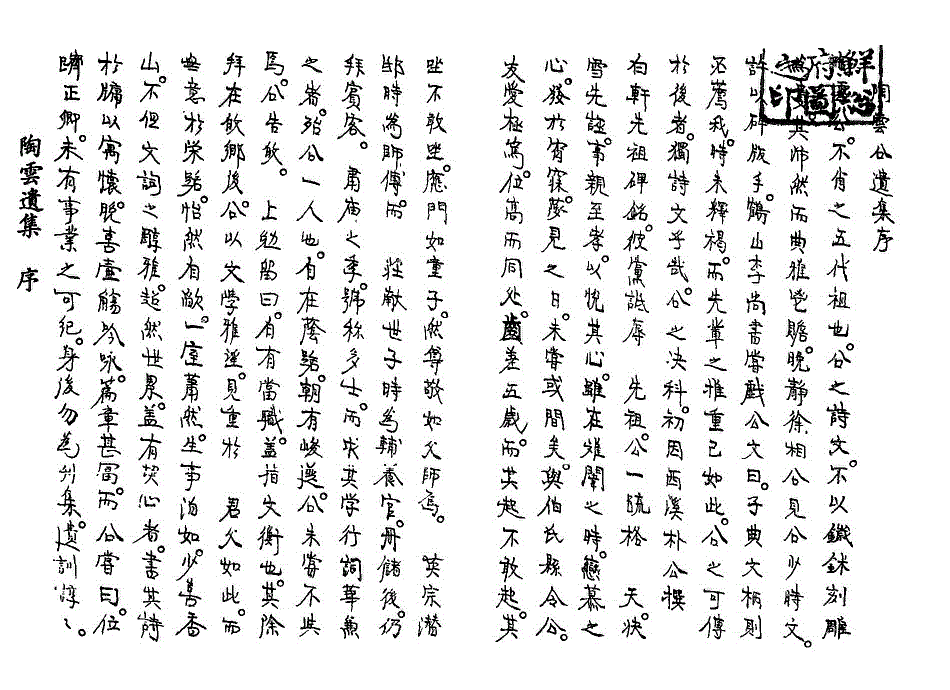 陶雲公遺集序
公不肖之五代祖也公之詩文不以鐵鉥刻雕
其沛然而典雅宏贍晚靜徐相公見公少時文
許以碑版手鶴山李尚書嘗戱公文曰子典文柄則
不薦我時未釋褐而先輩之推重已如此公之可傳
於後者獨詩文乎哉公之决科初因西溪朴公撰
白軒先祖碑銘彼黨詆辱 先祖公一疏格 天快
雪先誣事親至孝以悅其心雖在雄閫之時戀慕之
心發於宵寐夢見之日未嘗或間矣與伯氏縣令公
友愛極篤位高而同处齒差五歲而其起不敢起其
坐不敢坐應門如童子然尊敬如父師焉 英宗潜
邸時爲師傅而 莊献世子時爲輔養官册儲後仍
拜賓客 肅庙之季號称多士而求其学行詞華兼
之者殆公一人也有在蔭路朝有峻選公未嘗不與
焉公告歸 上勉留曰有有當職盖指文衡也其除
拜在歸鄉後公以文学雅逕見重於 君父如此而
無意於榮路怡然有歸一室蕭然生事泊如少喜香
山不但文詞之醇雅超然世累盖有契心者書其詩
於牖以寓懷晚喜壺觴吟咏篇章甚富而公嘗曰位
躋正卿未有事業之可紀身後勿爲刋集遺訓諄〻
陶雲遺集 序